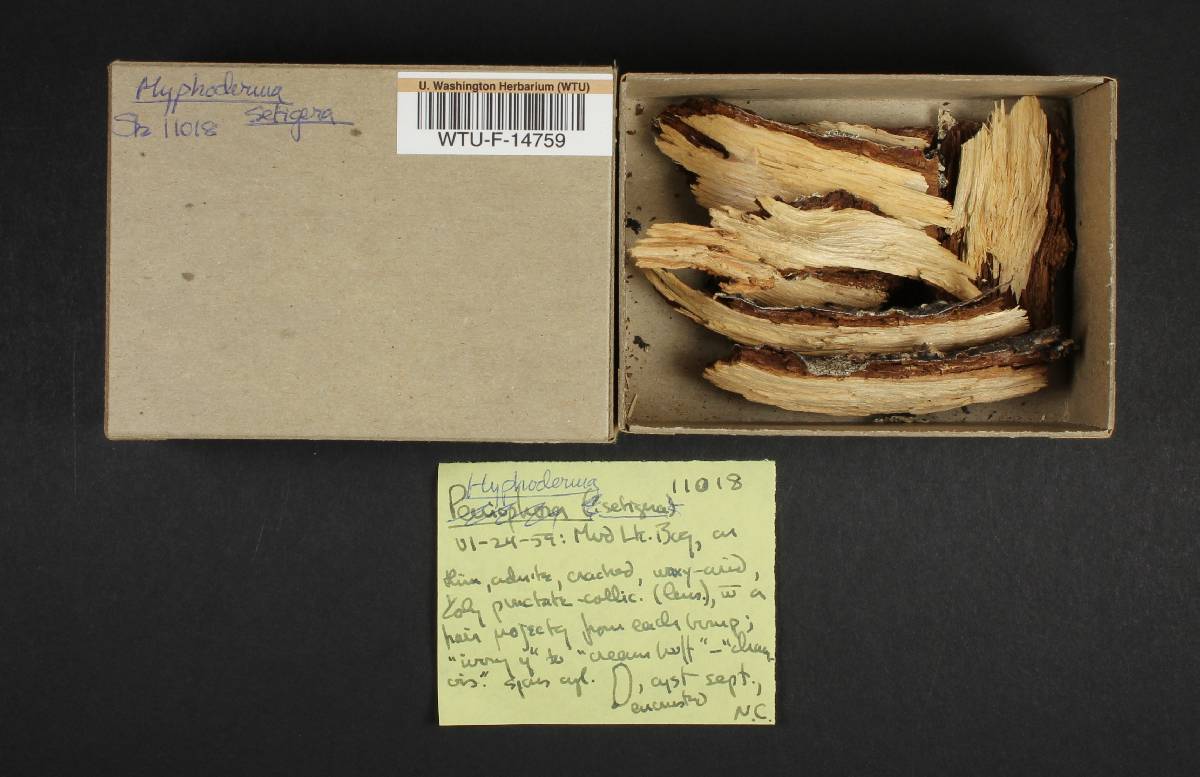 Hyphoderma
setigera
Stz 11018
U. Washington Herbarium (WTU)
WTU-F-14759
Hyphoderma 11018
Peniophora (setigera)
VI-24-59: Mud Lk. Bog, on
thin, adnate, cracked, waxy-arid,
punctate-collic. (lens), w̅ a
hair projectg from each bump;
"ivory y" to "cream buff"-"cham
ois." spores cyl. , cyst sept.,
encrusted
N.C.